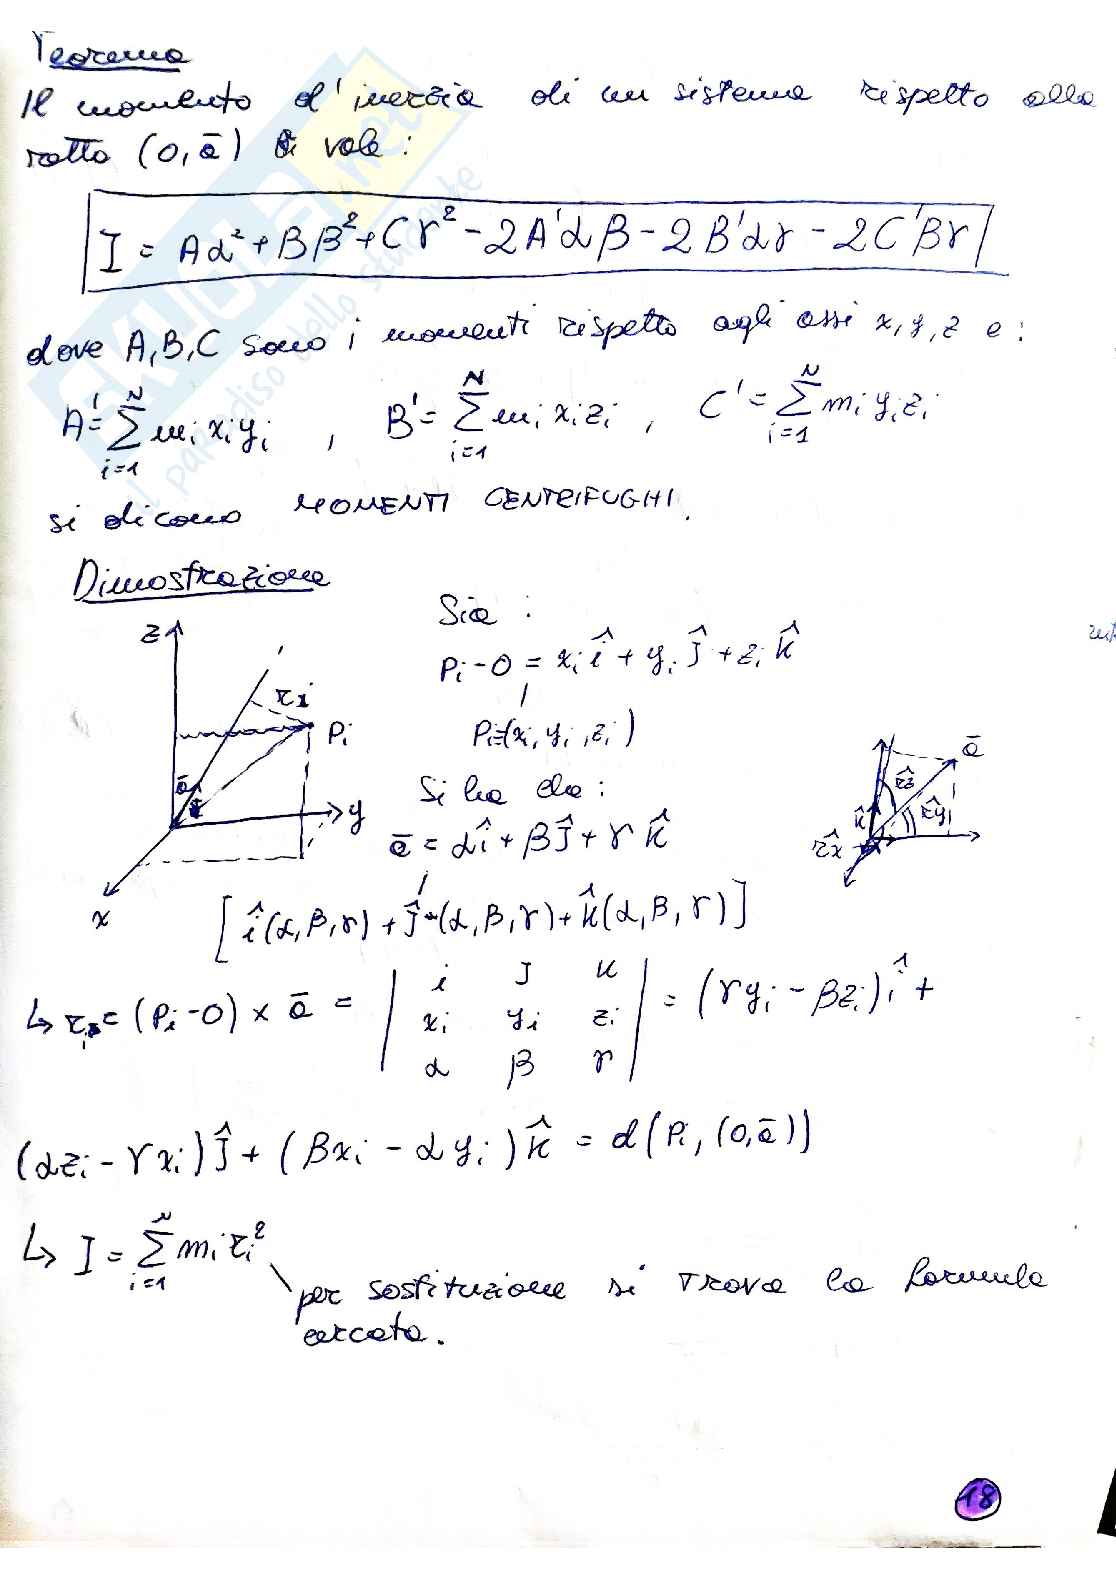 Teorema
Il momento d'inerzia di un sistema rispetto alla
retta (O, ā) vale:
I = Aα² + Bβ² + Cγ² - 2A'αβ - 2B'αγ - 2C'βγ
dove A, B, C sono i momenti rispetto agli assi x, y, z e:
A' = ∑_{i=1}^{N} m_i x_i y_i , B' = ∑_{i=1}^{N} m_i x_i z_i , C' = ∑_{i=1}^{N} m_i y_i z_i
si dicono MOMENTI CENTRIFUGHI.
Dimostrazione
Sia :
P_i - O = x_i î + y_i ĵ + z_i k̂
P_i=(x_i, y_i, z_i)
Si ha che:
ā = αî + βĵ + γk̂
[î(α, β, γ) + ĵ(α, β, γ) + k̂(α, β, γ)]
z
r_i
P_i
ā
y
x
ā
r̂z
r̂y
k̂
r̂x
↳ r_i = (P_i - O) × ā = | i J K ; x_i y_i z_i ; α β γ | = (γy_i - βz_i)î +
(αz_i - γx_i)ĵ + (βx_i - αy_i)k̂ = d(P_i, (O, ā))
↳ I = ∑_{i=1}^{N} m_i r_i²
per sostituzione si trova la formula
cercata.
18
SKUOLA.net
il paradiso dello studente